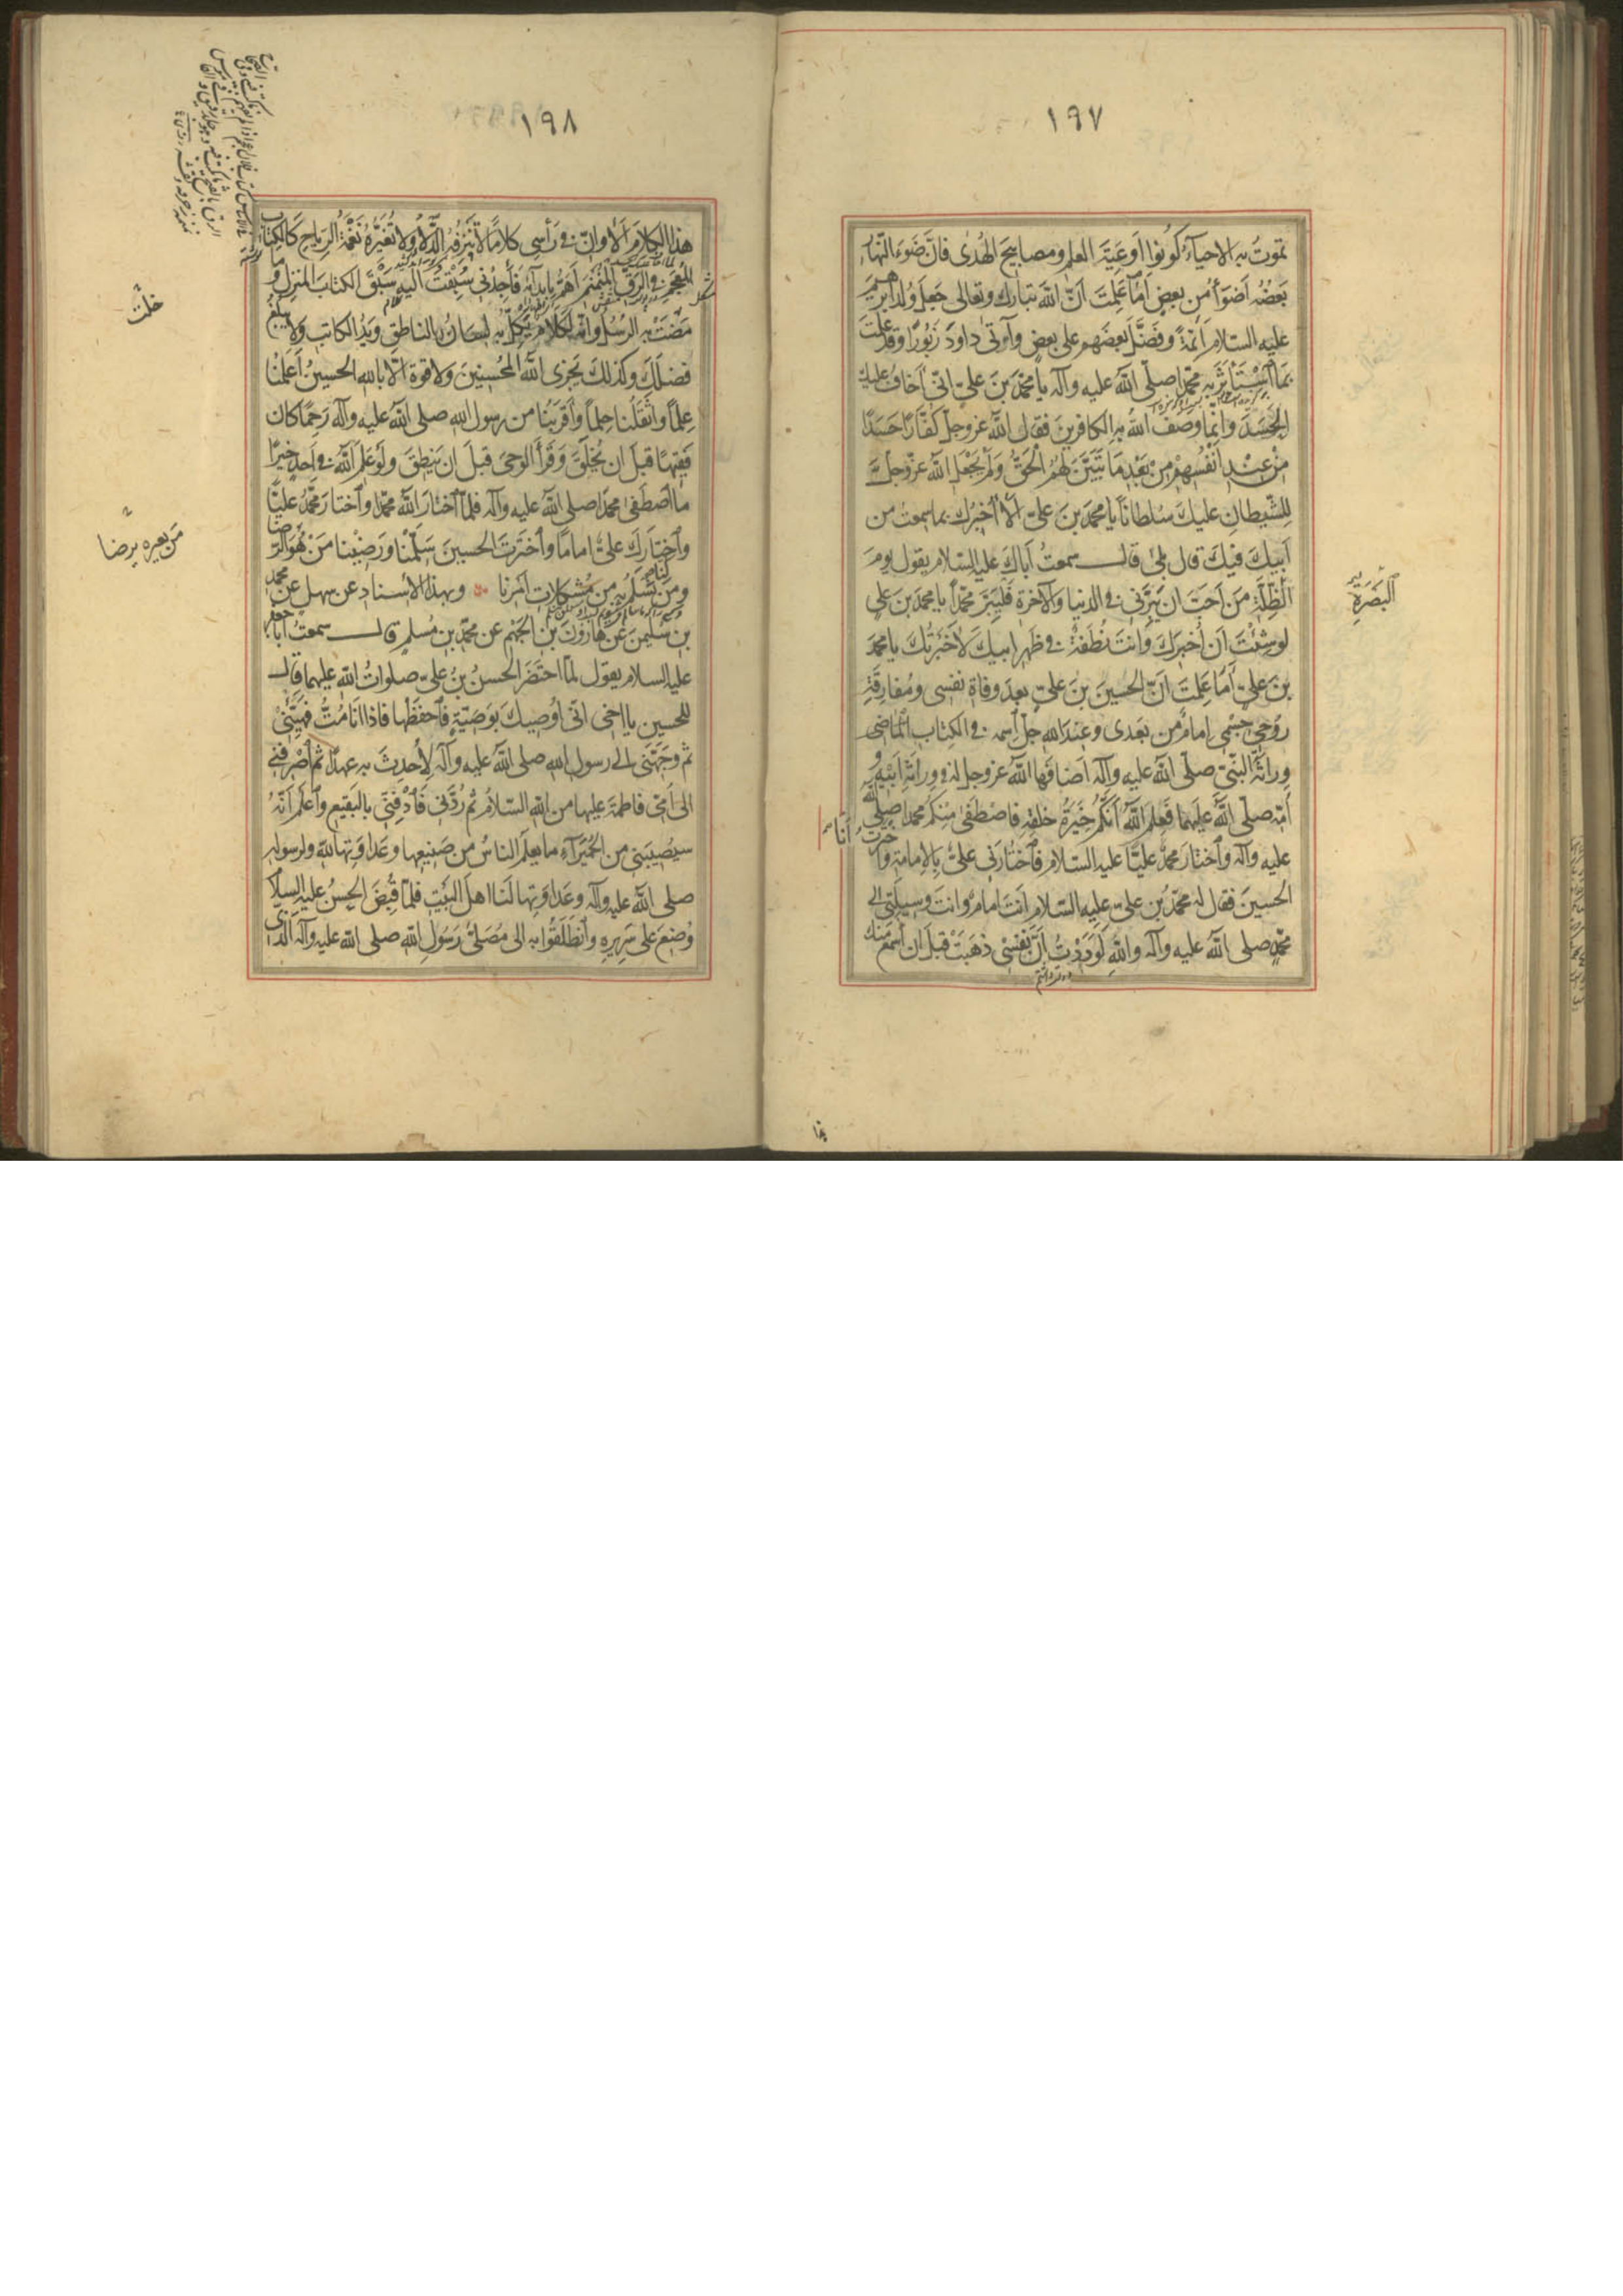 ١٩٧
تموتُ به الاحياءُ كُونُوا اَوعِيَةَ العلمِ ومصابيحَ الهُدىٰ فانّ ضَوءَ النّهارِ
بَعضُه اَضوَأُ من بعضٍ اَمَا عَلِمتَ اَنّ اللّٰه تبارك وتعالى جَعلَ وُلدَ ابرهيمَ
عليه السّلام اَئمّةً وفَضَّلَ بَعضَهم على بعضٍ وآتى داودَ زَبُورًا وقد عَلِمتَ
بمَا اسْتَأثَرَ به محمّدًا صلّى اللّٰه عليه وآله يا محمّدَ بنَ عليّ انّى اَخافُ عليك
الحَسَدَ وانّما وصَفَ اللّٰهُ به الكافرينَ فقال اللّٰه عزوجلّ كُفّارًا حَسَدًا
مِنْ عِنْدِ اَنْفُسِهِمْ مِنْ بَعْدِ مَا تَبَيَّنَ لَهُمُ الْحَقُّ وَلَمْ يَجْعَلِ اللّٰه عزّوجلّ
لِلشّيطانِ عليكَ سُلطانًا يا محمدَ بنَ عليّ اَلا اُخبِرُك بما سمعتُ من
اَبيكَ فيكَ قال بلىٰ قال سمعتُ اَباكَ عليه السّلام يقول يومَ
الظُلّةِ مَن اَحَبَّ ان يَبَرَّنى فى الدنيا والآخرة فَليَبَرَّ محمّدًا يا محمدَ بن علي
البَصْرَةِ
لو شِئتَ اَن اُخبِرَك وَانتَ نُطفَةٌ فى ظَهرِ ابيكَ لَاَخبَرتُكَ يا محمدَ
بنَ عليّ اَمَا عَلِمتَ اَنّ الحسينَ بنَ عليّ بعدَ وفاةِ نفسى ومُفارقَةِ
روُحى جِسْمى اِمامٌ من بَعدى وعندَ اللّٰه جلّ اسمه فى الكِتابِ الماضى
وِراثَةَ النّبىّ صلّى اللّٰه عليه وآله اَضافَها اللّٰه عزوجل له فى وِراثَةِ اَبيْهِ و
اُمّه صلّى اللّٰه عليهما فَعلِم اللّٰهُ اَنّكُم خِيَرَةُ خَلقِهِ فاصْطَفىٰ مِنكُم محمدا صلى اللّٰه
عليه وآله وٱختارَ محمّدٌ عليًّا عليه السّلام فَٱختارَنى عليٌّ بِالاِمامةِ وٱخترتُ اَنا
الحسينَ فقال له محمّدُ بن عليّ عليه السّلام اَنتَ اِمامٌ وانتَ وَسيلَتى الى
محمّدٍ صلى اللّٰه عليه وآله واللّٰهِ لَوَدِدْتُ اَنَّ نَفْسى ذهَبَتْ قبلَ ان اَسمَعَ منك
١٩٨
هذا الكلامَ اَلا وانّ فى رَأسى كلامًا لا تُنزِفُهُ الدِّلاءُ ولا تُغيّرُهُ نَغْمَةُ الرِياحِ كَالكِتابِ
المُعجَمِ فى الرَقِّ المُنَمْنَمِ اَهُمُّ بِاِبدائهِ فَأجِدُنى سُبِقتُ اليه سَبْقَ الكتاب المُنزلِ وما
مَضَتْ به الرُسُلُ وانّه لَكلامٌ يَكِلُّ به لِسانُ الناطقِ ويَدُ الكاتبِ ولا يبلغُ
فضلَكَ وكذلكَ يَجزى اللّٰهُ المُحسِنينَ ولا قوةَ الّا باللّٰهِ الحسينُ اَعلَمُنا
عِلمًا واَثقَلُنا حِلمًا وَاَقرَبُنا من رسول اللّٰه صلى اللّٰه عليه وآله رَحِمًا كان
فَقِيهًا قبلَ ان يُخلَقَ وَقَرأَ الوحىَ قبلَ ان يَنطِقَ ولَو عَلِمَ اللّٰه فى اَحدٍ خيرًا
ما اصطَفىٰ محمدًا صلى اللّٰه عليه وآله فلمّا ٱختارَ اللّٰهُ محمّدًا وٱختارَ محمّدٌ عليًّا
وٱختارَكَ عليٌّ امامًا وٱخترتَ الحسينَ سَلّمْنا ورَضِيْنا مَنْ هُوَ الرّضا
مَن بغيره يرضا
ومَن نَسْلَمُ به من مُشكِلات اَمرِنا وبهذا الاِسنادِ عن سهل عن محمد
بن سُليمٰنَ عن هارونَ بن الجَهْمِ عن محمّد بن مُسلمٍ قال سمعتُ ابا جعفر
عليه السلام يقول لمّا احتَضَرَ الحسنُ بنُ عليّ صلواتُ اللّٰه عليهما قال
للحسين يا اخى انّى اُوصيكَ بوَصيّةٍ فٱحفَظْها فاذا اَنا مُتُّ فهَيِّئنى
ثم وَجِّهنى الى رسول اللّٰه صلى اللّٰه عليه وآله لِاُحدِثَ به عهدًا ثم اصْرِفنى
الى اُمّى فاطمةَ عليها من اللّٰهِ السّلامُ ثم رُدَّنى فَٱدْفِنّى بالبَقيعِ وٱعلَم اَنّهُ
سيُصيبَنى من الحُمَيراءِ ما يعلَم الناسُ من صَنيعِها وعَداوَتِها للّٰه ولرسوله
صلى اللّٰه عليه وآله وعَداوَتِها لَنا اهلَ البَيتِ فلمّا قُبِضَ الحسنُ عليه السلام
وُضِعَ على سَريرِه وٱنطَلَقُوا به الى مُصَلّىٰ رَسُولِ اللّٰه صلى اللّٰه عليه وآله الذى